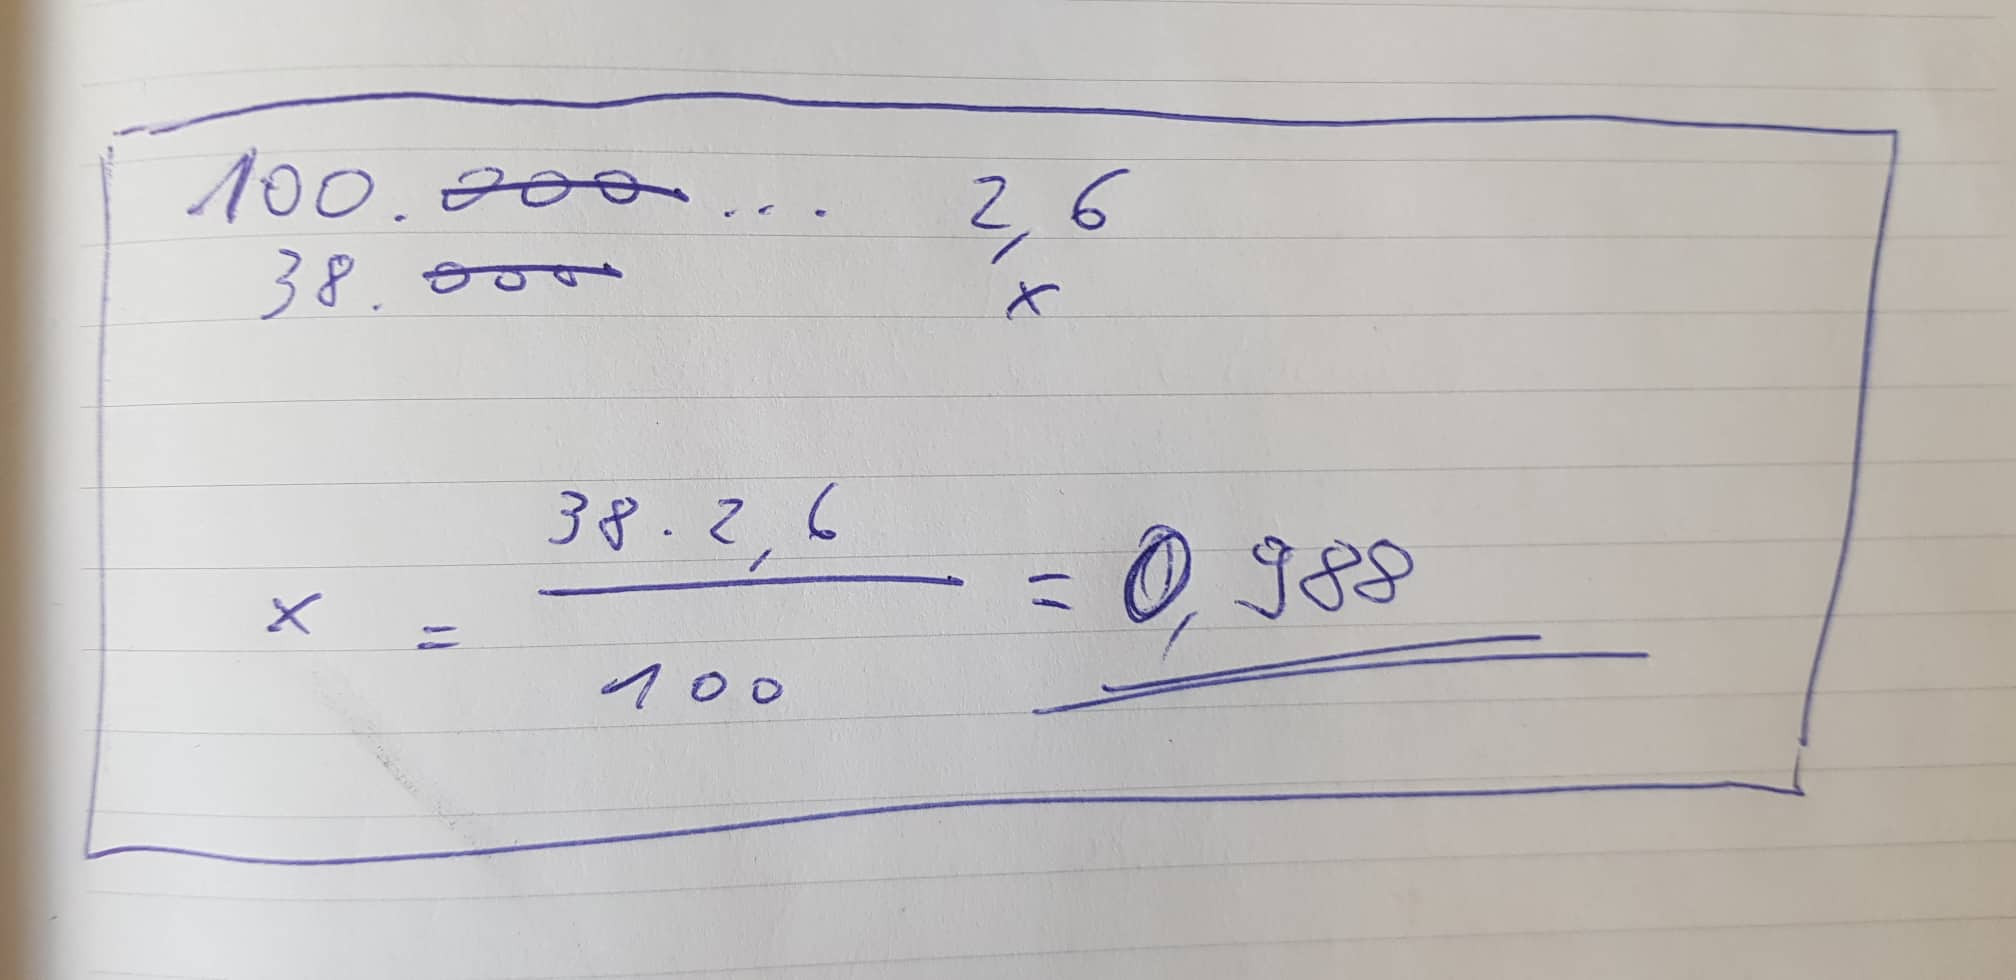 100.000... 2,6
38.000 x
38.2,6
x = = 0,988
100